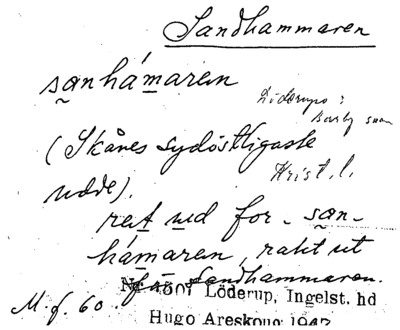 Sandhammaren
sanhámaren
Löderups s
(Skånes sydöstligaste
Krist. l.
udde).
ret ud for - san-
hámaren, rakt ut
från Sandhammaren.
M. f. 60.
Löderup, Ingelst. hd
Hugo Areskoug 1947